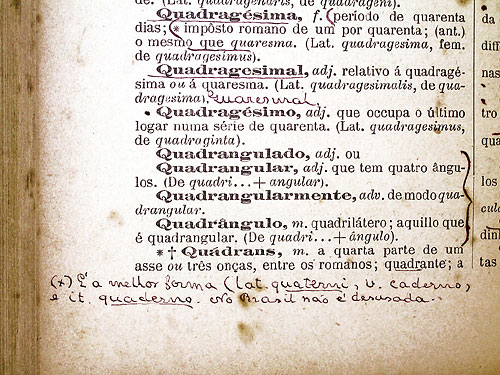 de. (Lat. quadragenaris, de quadrageni).
Quadragésima, f. (período de quarenta
dias; (* impôsto romano de um por quarenta; (ant.)
o mesmo que quaresma. (Lat. quadragesima, fem.
de quadragesimus).
Quadragesimal, adj. relativo á quadragé-
sima ou á quaresma. (Lat. quadragesimalis, de qua-
dragesima). quaresmal
• Quadragésimo, adj. que occupa o último
logar numa série de quarenta. (Lat. quadragesimus,
de quadraginta).
Quadrangulado, adj. ou
Quadrangular, adj. que tem quatro ângu-
los. (De quadri...+angular).
Quadrangularmente, adv. de modo qua-
drangular.
Quadrângulo, m. quadrilátero; aquillo que
é quadrangular. (De quadri...+ângulo).
*† Quádrans, m. a quarta parte de um
asse ou três onças, entre os romanos; quadrante; a
(x) É a melhor forma (lat. quaterni, v. caderno,
e it. quaderno. No Brasil não é desusada.
da
difi
nas
tro
qua
los
culo
dinh
tas